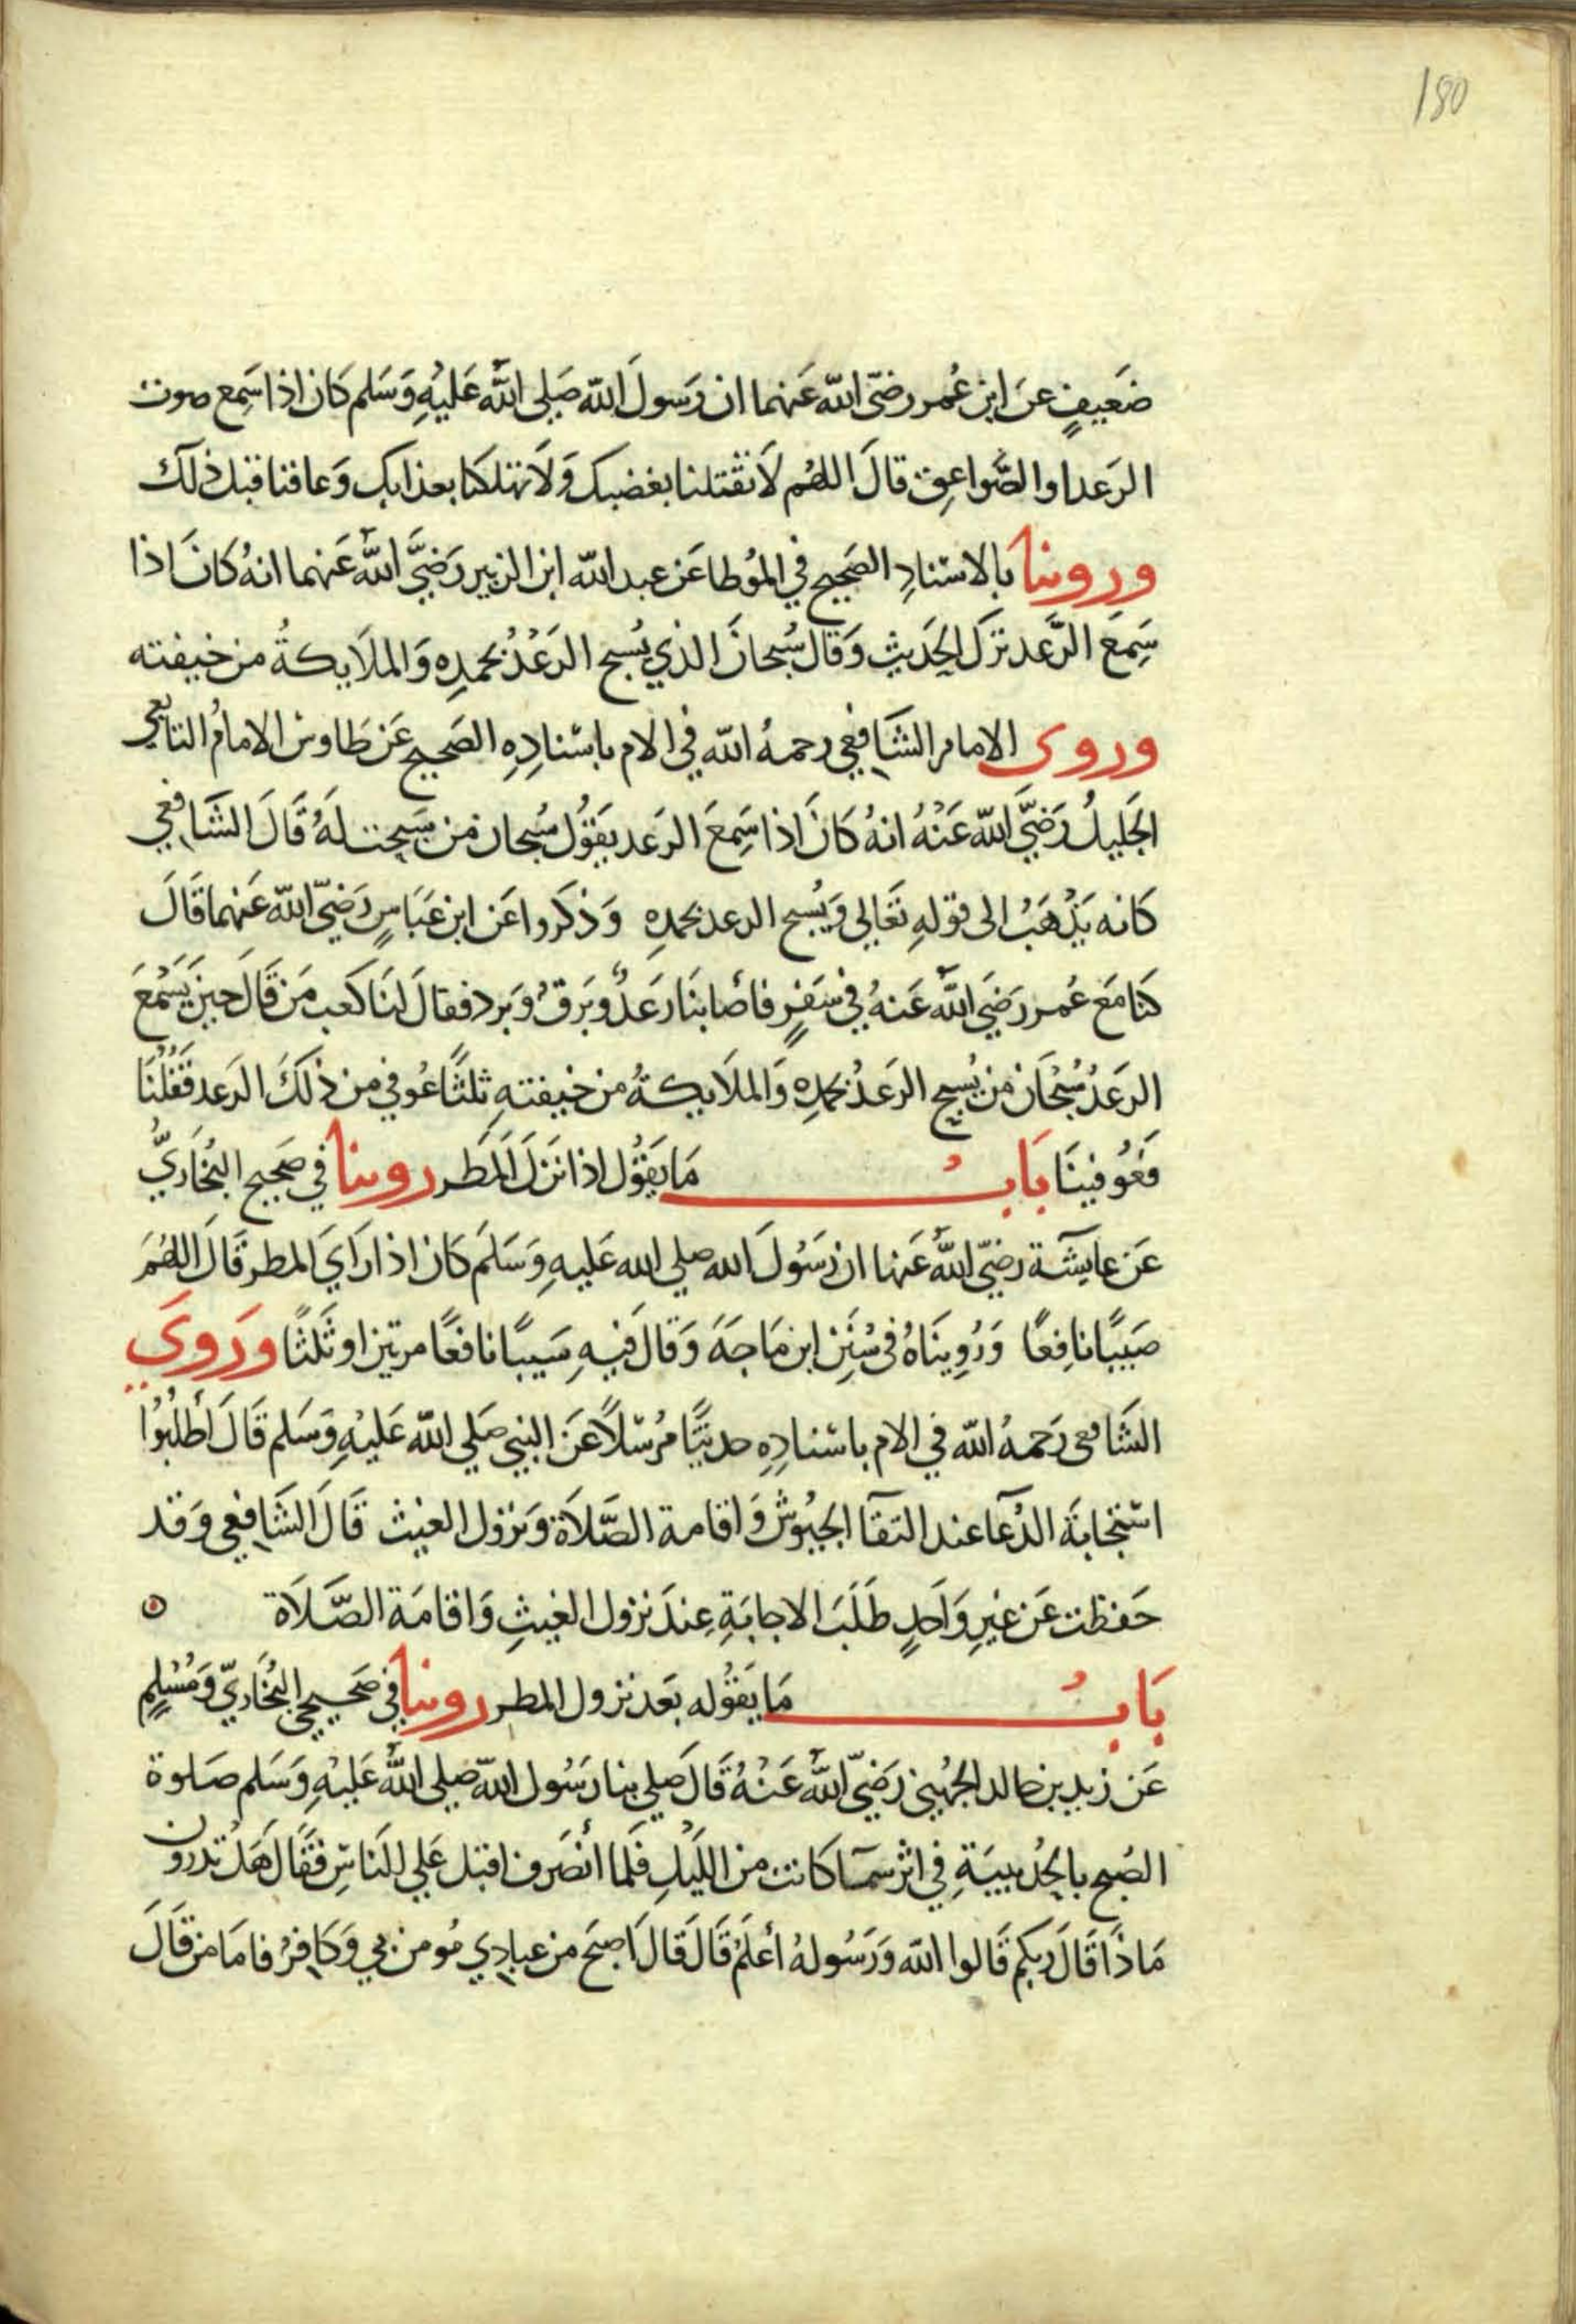 180
ضَعيفٍ عنَ ابن عُمر رضيّ الله عَنهما ان رَسولَ الله صَلي الله عَليْهِ وَسَلم كان اذا سَمِع صوت
الرَعدا والصَّواعِق قالَ اللهُم لاَ تقتلنا بغضبك وَلاَ تهلكنا بعذابك وَعافنا قبل ذلك
وروينا بالاسنادِ الصَحيح في المُوطا عَن عبد الله ابن الزبير رَضيَّ الله عَنهما انهُ كانَ اذا
سَمِعَ الرَّعد تركَ الحَديث وَقال سُبحانَ الذي يُسبح الرَعْدُ بحمدِه وَالملاَيكةُ من خيفته
وروى الامام الشَافعي رحمهُ الله في الام باسْنادِهِ الصَحيح عَن طَاوس الامامُ التابعي
الجَليلُ رَضيَّ الله عَنْهُ انهُ كانَ اذا سَمِعَ الرَعد يَقوُل سُبحان من سَبحت لهُ قَالَ الشَافعي
كانه يَذْهَبُ الى قولهِ تعَالى وَيُسبح الرعد بحمدِه وَذكَروا عَن ابن عَبَاسٍ رَضيّ الله عَنهما قَالَ
كنا مَعَ عُمر رَضيَ الله عَنهُ في سَفرٍ فاصَابنَا رَعَدٌ وبَرَقٌ وَبَرد فقالَ لنَا كَعب مَن قَالَ حينَ يَسْمعَ
الرَعَدُ سُبْحَان من يُسبح الرَعَدُ بحمدِه وَالملاَيكةُ من خيفتهِ ثلثًا عُوفي من ذلكَ الرَعد فَقُلْنَا
فَعُوفينَا بَابُ مَا يَقوُل اذا نَزلَ المَطَر روينا في صَحيح البُخَاريُّ
عَن عايشَة رَضيّ الله عَنها ان رَسُولَ الله صلي الله عَليهِ وَسَلَم كان اذا رَايَ المطر قَالَ اللهُمَ
صَيبًا نافِعًا وَرُوِينَاهُ في سُنَنِ ابن مَاجَهَ وَقالَ فيهِ سَيبًا نافعًا مرتين او ثَلثًا وَرَويَ
الشَافعى رَحمهُ الله في الام باسْنادِهِ حديثًا مُرْسَلاً عَن النبي صَلي الله عَليْهِ وَسَلم قَالَ أطلبُوُا
استجابَة الدُعَآ عند التقَآ الجيُوُش وَاقامة الصَّلاَة وَنزول الغيث قَالَ الشَافعي وَقد
حَفظت عَن غيرِ وَاحدٍ طَلَبَ الاجابَةِ عِندَ نزول الغيثِ وَاقامَة الصَّلاَة
بَابُ مَا يَقوُله بَعد نزول المطر روينا في صَحيحي البُخَاريّ وَمُسْلِمٍ
عَن زيد بن خالد الجهَني رَضيّ الله عَنْهُ قَالَ صَلي بنا رَسُول الله صَلي الله عَليْهِ وَسَلم صَلوة
الصُبح بالحُديبيَةِ في اثر سمَآ كانت من اللَيْلِ فلَما أنصَرف اقبل عَلي النَاسِ فقَالَ هَلْ تَدرون
مَاذَا قَالَ ربكم قَالوا الله وَرَسُولهُ أعلَمُ قَالَ قَالَ اَصبَح من عبادِي مُومن بي وَكافرٌ فامَا مَن قَالَ